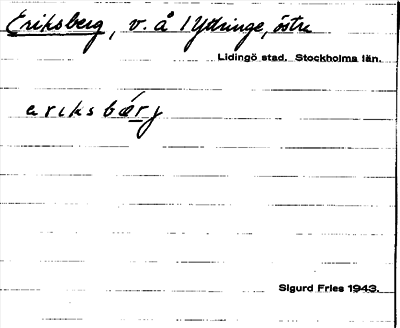 Eriksberg, v. å 1 Yttringe, östra
Lidingö stad. Stockholms län.
eriksbærj
Sigurd Fries 1943.